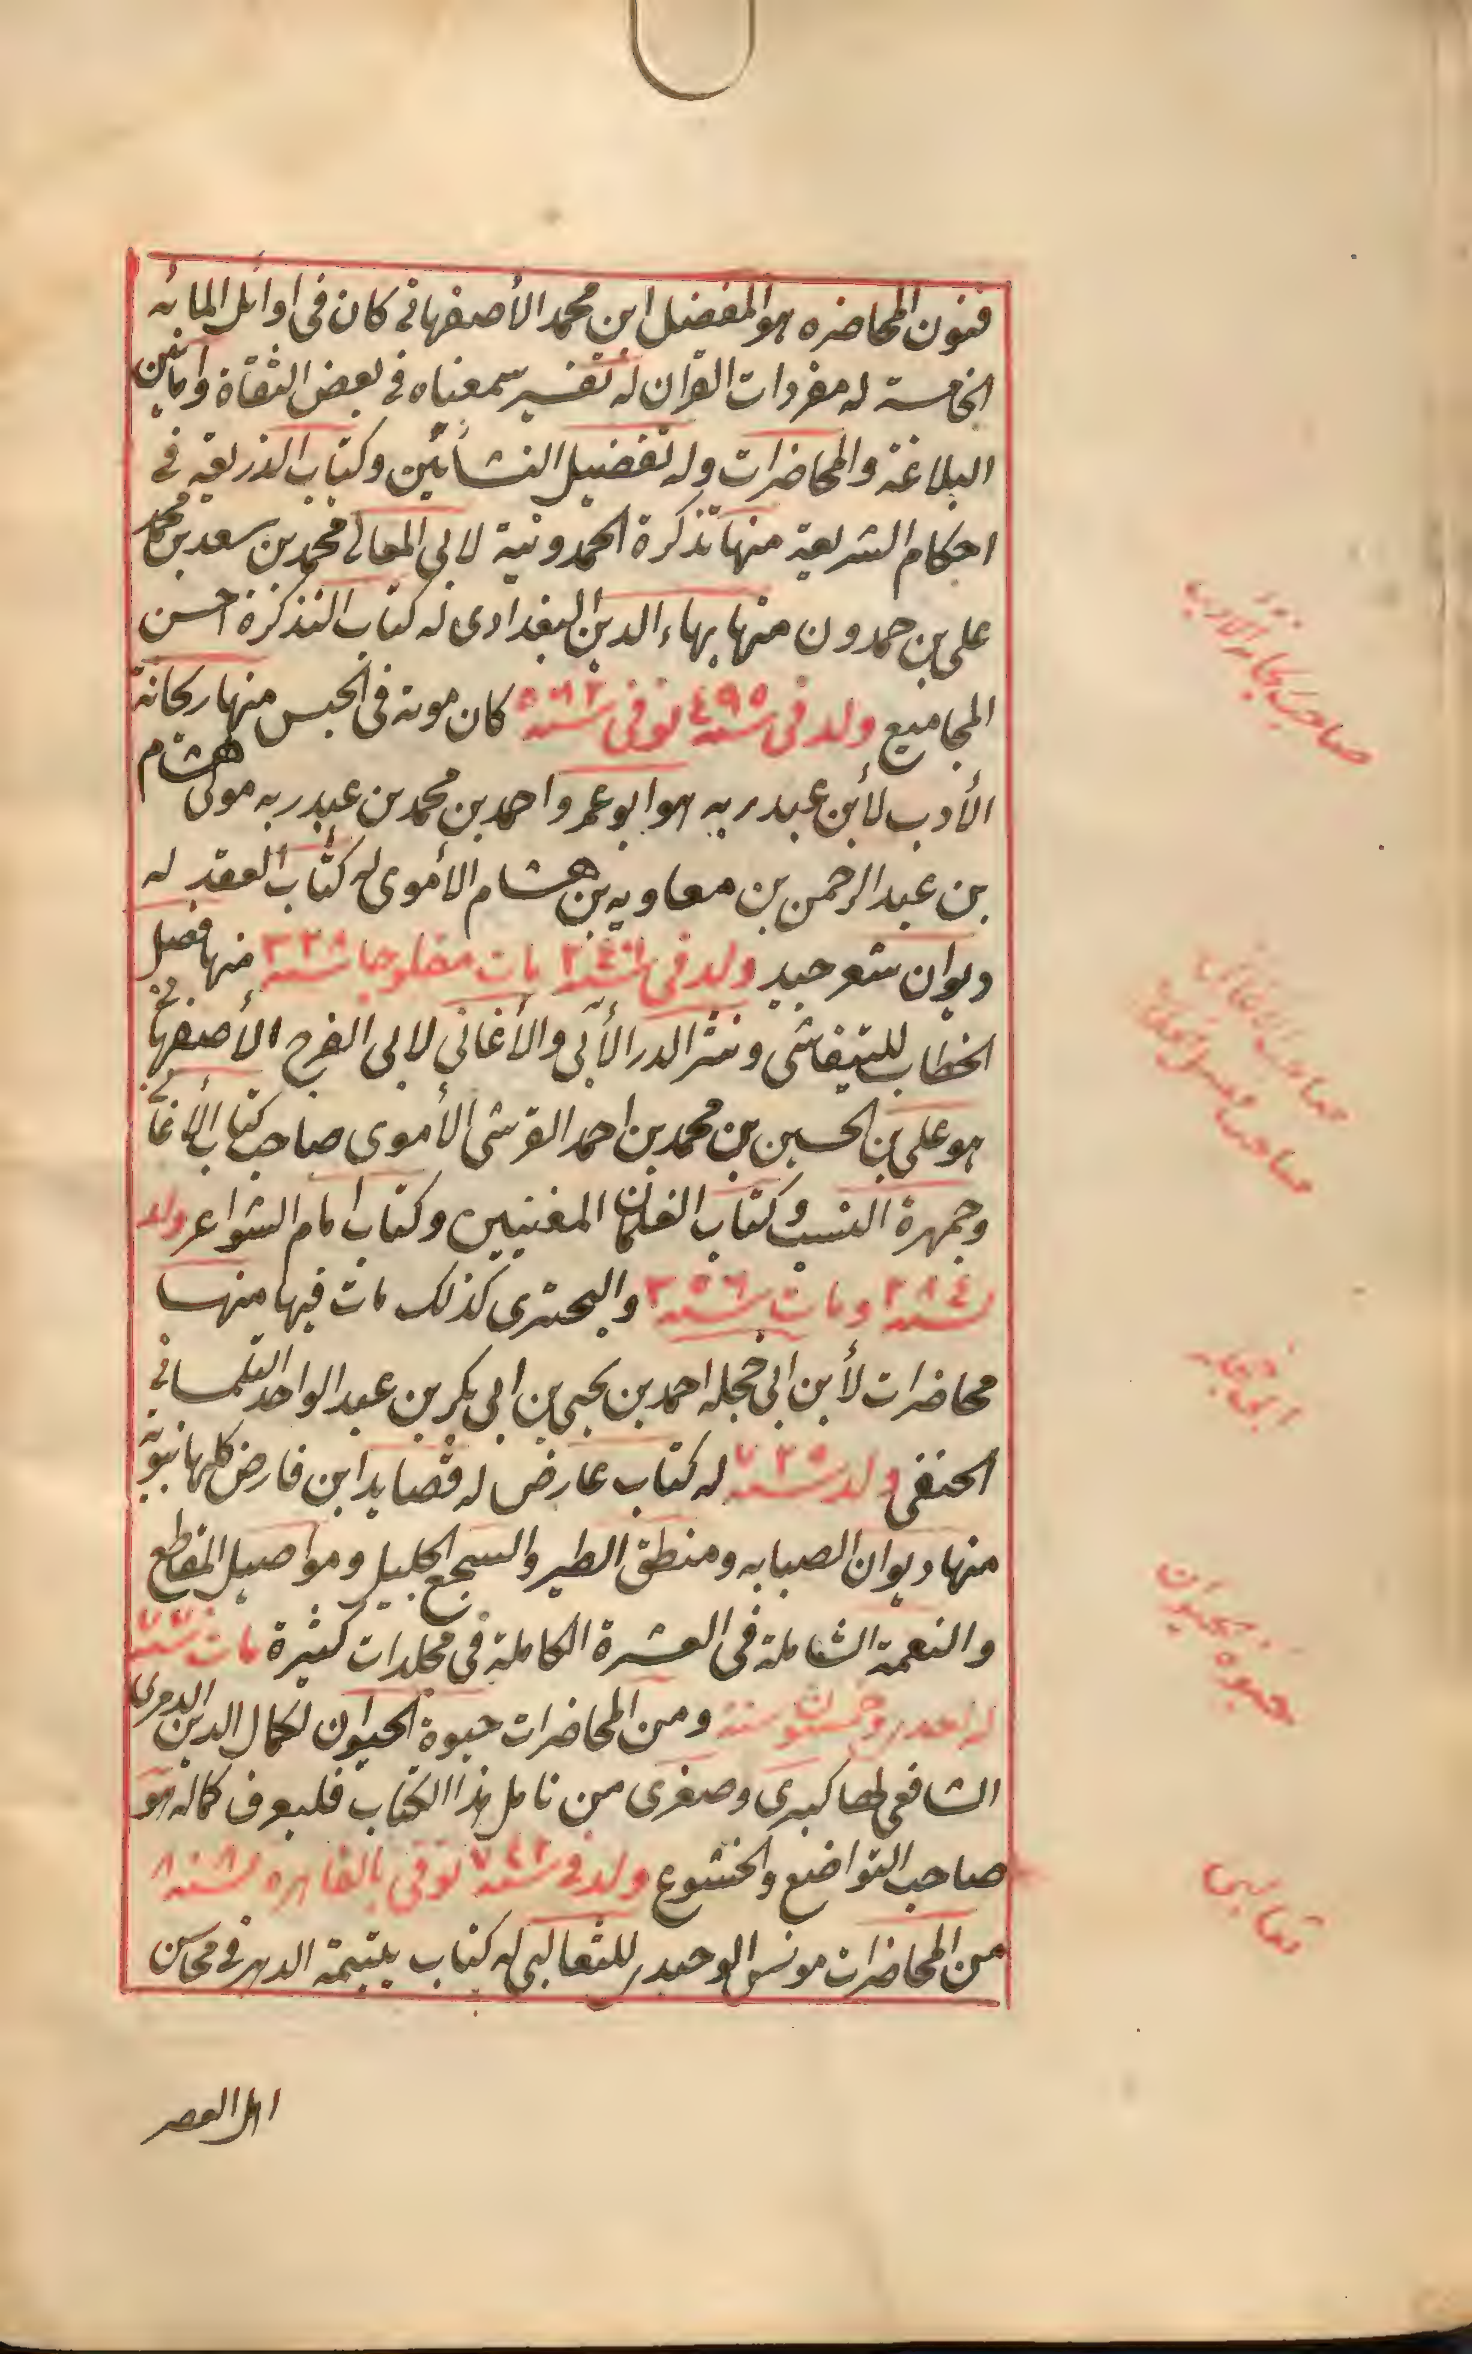 فنون المحاضره هو المفضل ابن محمد الأصفهاني كان في اوائل المائه
الخامسة له مفردات القران له تفسير سمعناه في بعض الثقاة وافانين
البلاغة والمحاضرات وله تفضيل النشأتين وكتاب الذريعة في
احكام الشريعة منها تذكرة الحمدونية لابي المعالي محمد بن سعد بن محمد
علي بن حمدون منها بهاء الدين البغدادى له كتاب التذكرة احسن
المجاميع ولد في سنة ٤٩٥ توفى سنة ٥٨٢ كان موته في الحبس منها ريحانة
الأدب لأبن عبد ربه هو ابو عمر واحمد بن محمد بن عبد ربه مولى هشام
بن عبد الرحمن بن معاويه بن هشام الأموى له كتاب العقد له
ديوان شعر جيد ولد في سنة ٢٤٦ مات مفلوجا سنة ٣٢٨ منها فصل
الخطاب للتيفاشى ونثر الدر الأبي والأغاني لابى الفرج الأصفهاني
هو علي بن الحسين بن محمد بن احمد القرشى الأموى صاحب كتاب الأغاني
وجمهرة النسب وكتاب الغلمان المغنيين وكتاب امام الشواعر ولد
سنة ٢٨٤ ومات سنة ٣٥٦ والبحترى كذلك مات فيها منها
محاضرات لأبن ابي حجله احمد بن يحيى بن ابى بكر بن عبد الواحد التلمساني
الحنفى ولد سنة ٧٢٥ له كتاب عارض له قصايد ابن فارض كلها نبوية
منها ديوان الصبابه ومنطق الطير والسجع الجليل ومواصيل المقاطع
والنعمة الشاملة في العشرة الكاملة في مجلدات كثيرة مات سنة ٧٧
له احد وخمسون سنة ومن المحاضرات حيوة الحيوان لكمال الدين الدميرى
الشافعى لها كبرى وصغرى من تامل هذا الكتاب فليعرف كماله هو
صاحب التواضع والخشوع ولد في سنة ٧٤٢ توفى بالقاهره سنة ٨٠٨
من المحاضرات مونس الوحيد للثعالبى له كتاب يتيمة الدهر في محاسن
اهل العصر
صاحب ريحانة الادب
صاحب الاغاني
صاحب فصل الخطاب
ابي حجله
حيوة الحيوان
ثعالبى